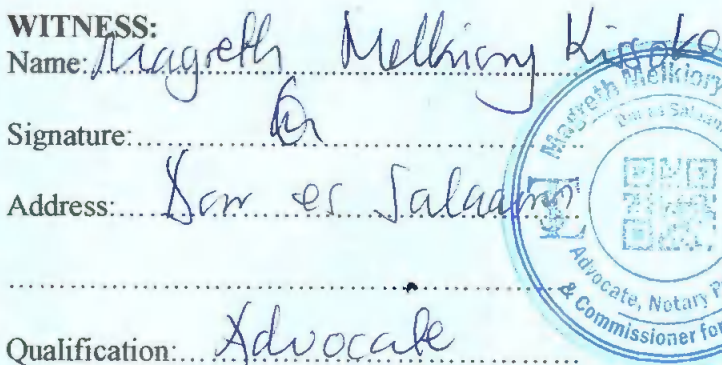 WITNESS:
Name: Magreth Melkiory Kissoka
Signature:
Address: Dar es Salaam
Qualification: Advocate
Magreth Melkiory
Dar es Salaam
Advocate, Notary P
& Commissioner for